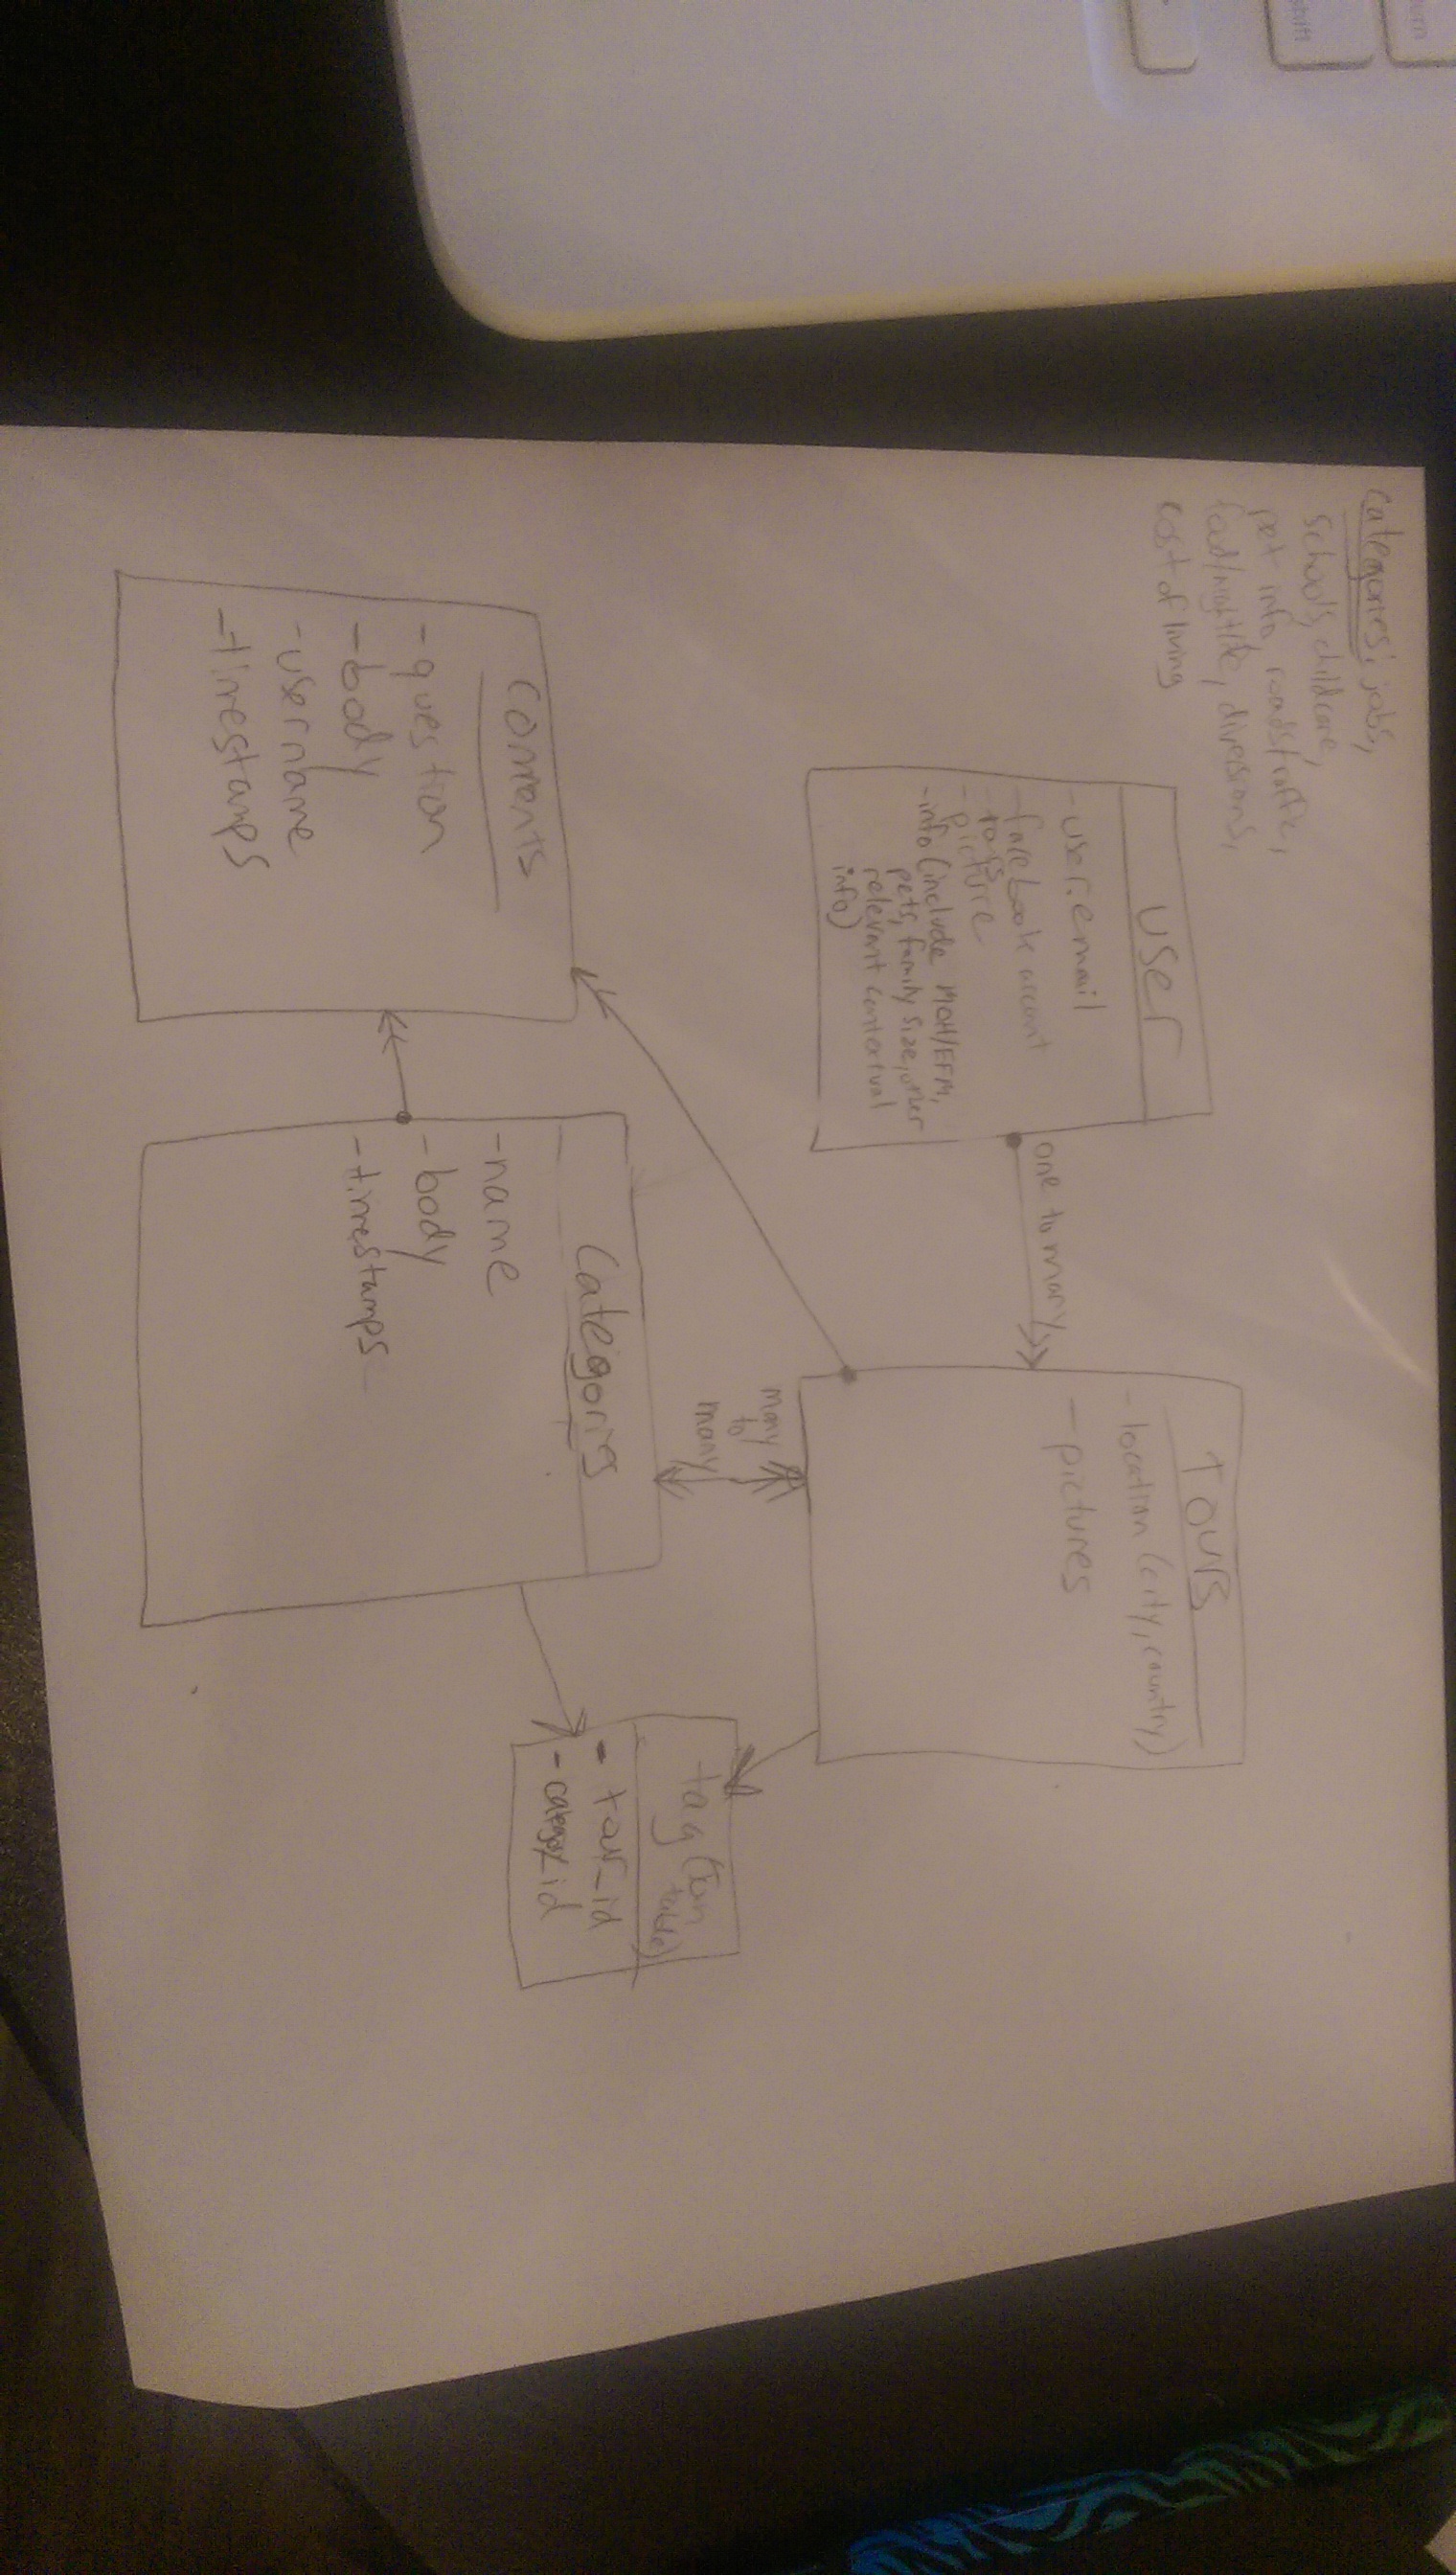 categories: jobs,
schools, childcare,
pet info, roads/traffic,
food/nightlife, diversions,
cost of living
User
- user.email
- facebook account
- picture
- info (include MOH/EFM,
pets, family size, other
relevant contextual
info)
one to many
Tours
- location (city, country)
- pictures
many
to
many
Comments
- question
- body
- username
- timestamps
Categories
- name
- body
- timestamps
tag (Join
table)
- tour_id
- category_id
shift